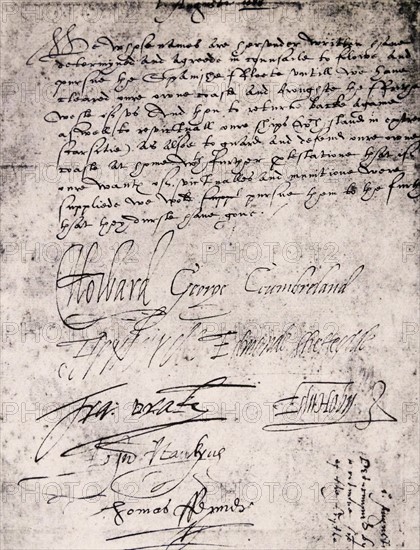 1 Auguste 1588
We whose names are hereunder written have
determined and agreede in counsaile to folowe and
pursue the Spanishe Fleete untill we have
cleared oure owne coast and broughte the Frithe
west of us and then to returne backe againe
aswell to revictuall oure ships wch stand in extreme
scarsitie as alsoe to guard and defend oure owne
coast at home wth further protestatione that if
oure wants of victualles and munitione were
suppliede we wold pursue them to the furthest
that they durste have gone
C Howard George Cumbreland
Edmonde Sheffeylde
Fra: Drake Edw: Hoby
John Hawkyns
Thomas Fenner
PHOTO12